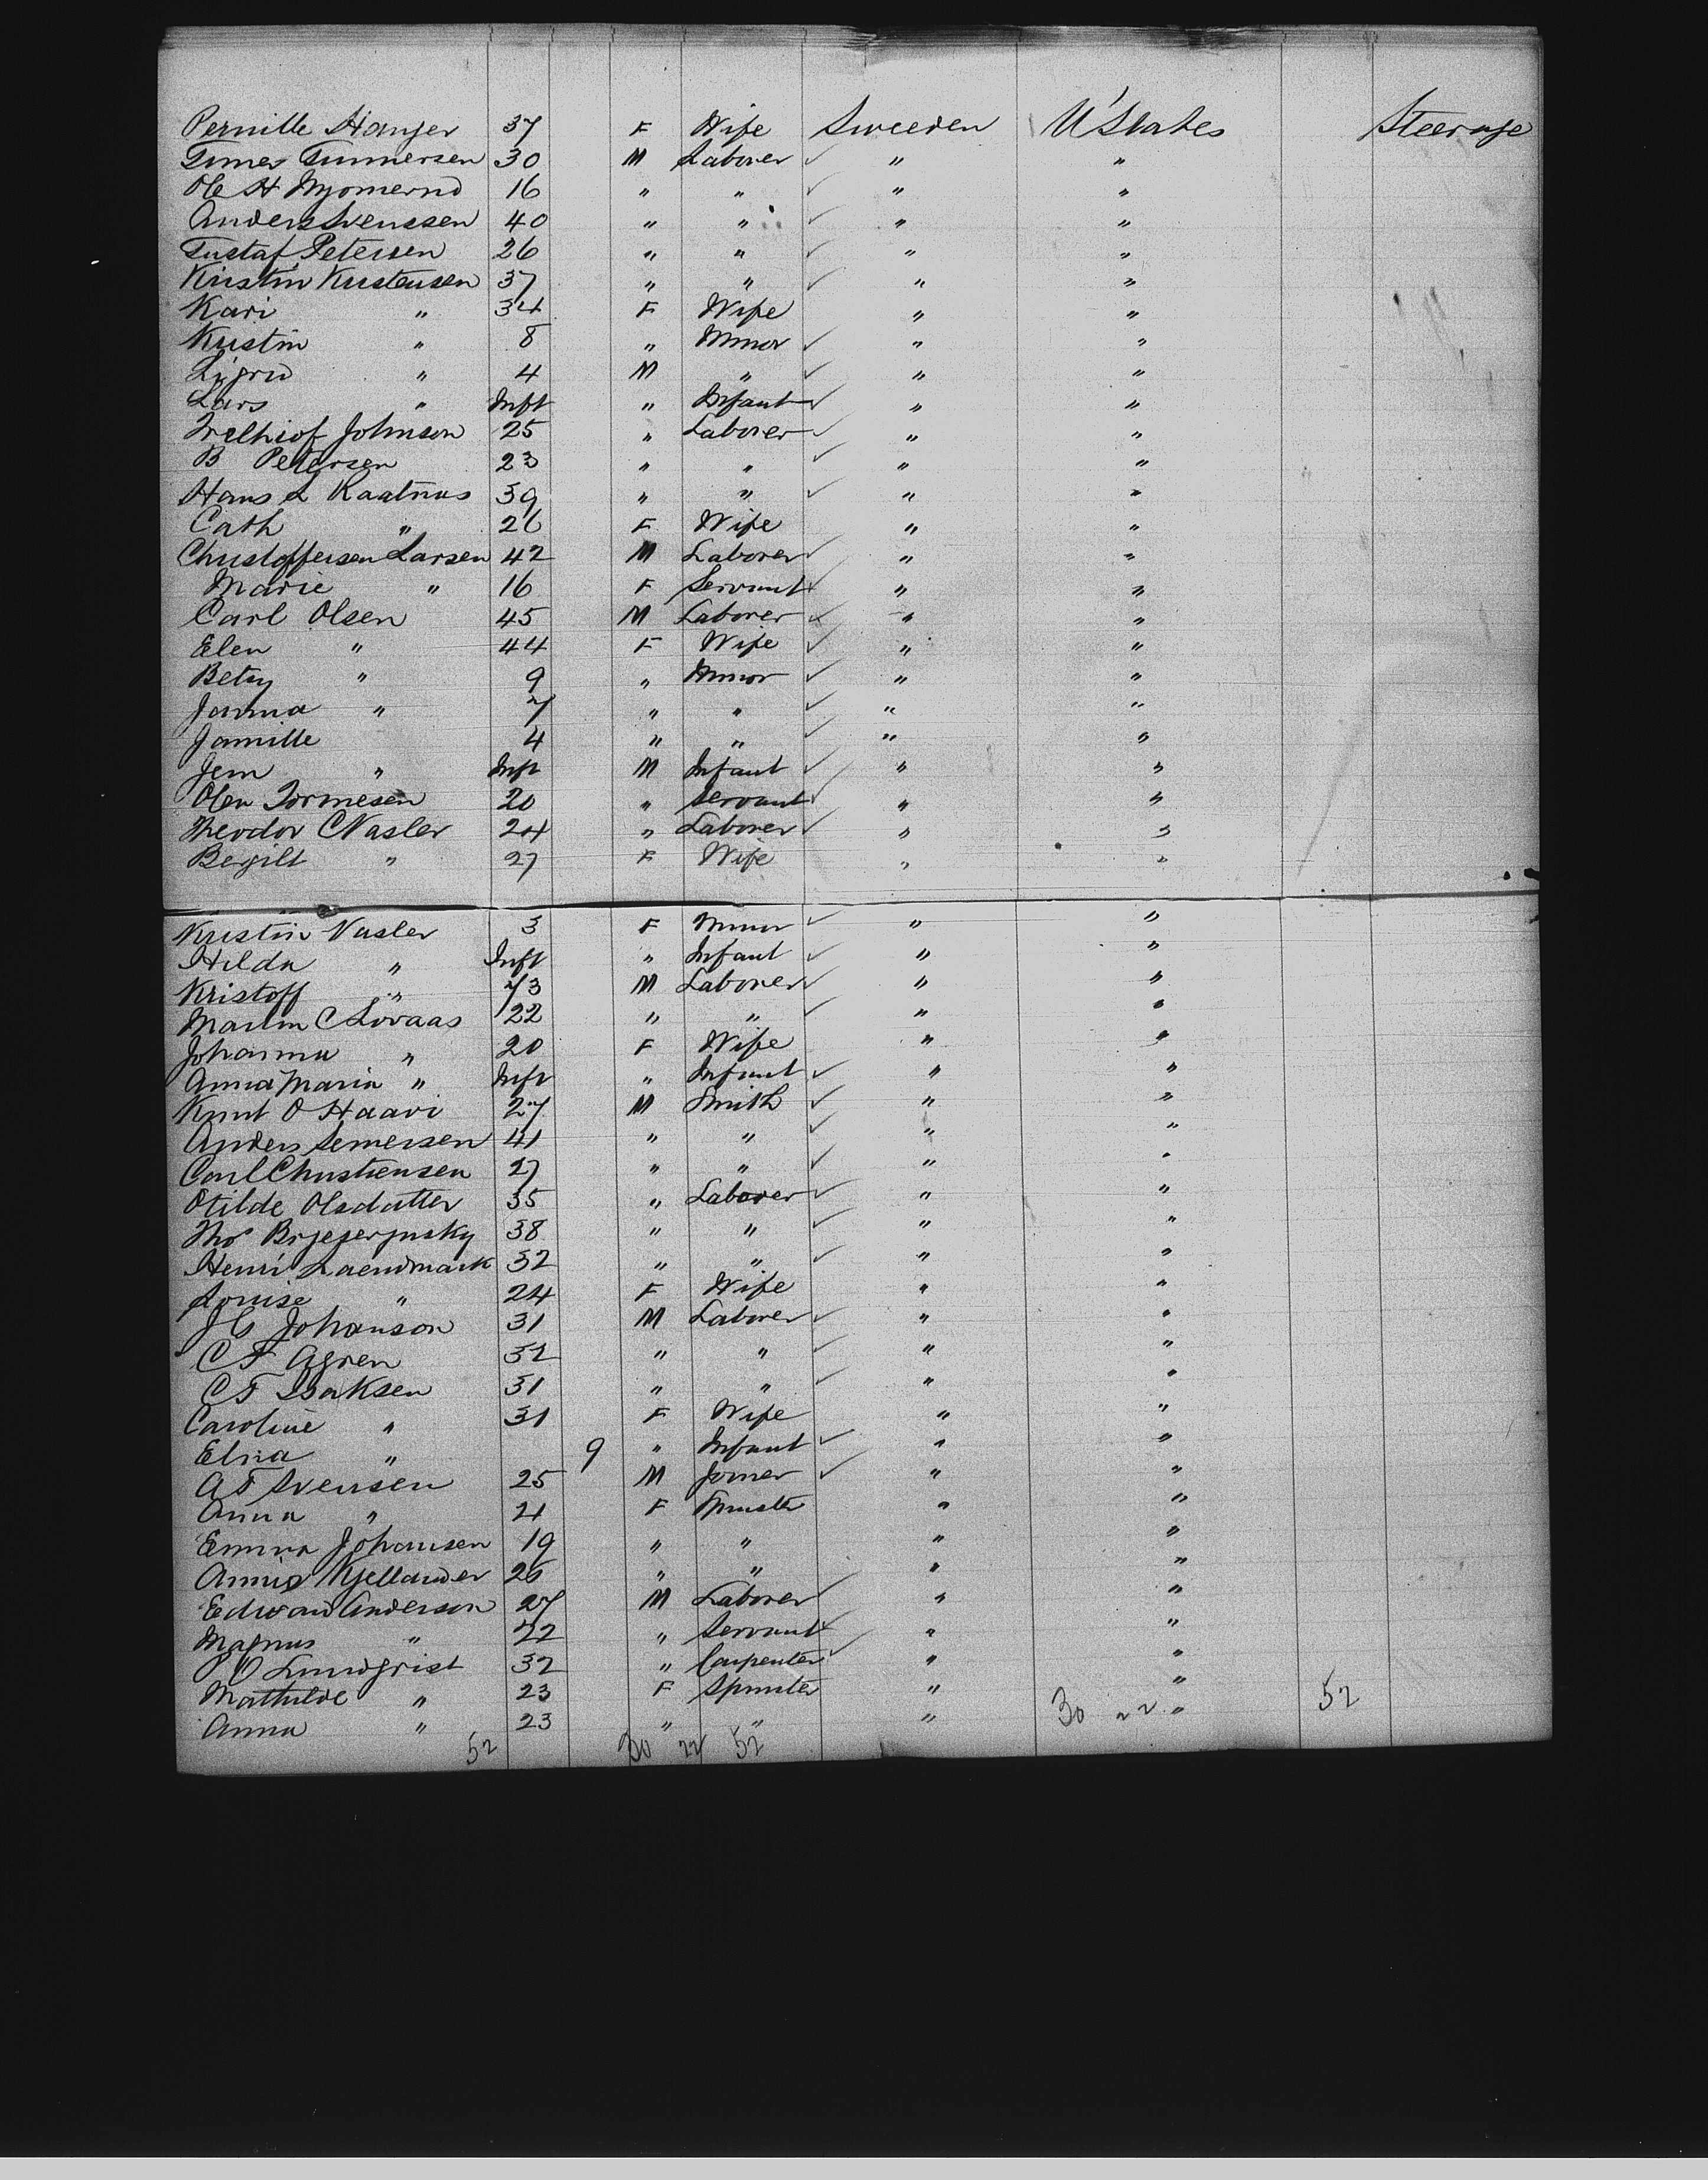 Pernille Hanger 37 F Wife Sweeden U'States Steerage
Gunner Gunnersen 30 M Laborer ✓ " "
Ole H 16 " " ✓ " "
Anders Svenssen 40 " " ✓ " "
Gustaf Petersen 26 " " ✓ " "
Kristin Kristensen 37 " " ✓ " "
Kari " 34 F Wife " "
Kristin " 8 " Minor ✓ " "
Sigrid " 4 M " ✓ " "
Lars " Inft " Infant ✓ " "
Johnson 25 " Laborer ✓ " "
B Petersen 23 " " ✓ " "
Hans L Raatnus 39 " " ✓ " "
Cath " 26 F Wife " "
Christoffersen Larsen 42 M Laborer ✓ " "
Marie " 16 F Servant ✓ " "
Carl Olsen 45 M Laborer ✓ " "
Elen " 44 F Wife ✓ " "
Betsy " 9 " Minor ✓ " "
Janna " 7 " " ✓ " "
Jamille 4 " " ✓ " "
Jem " Inft M Infant ✓ " "
Olen Tormesen 20 " Servant ✓ " "
Theodor C Nasler 24 " Laborer ✓ " "
Bergilt " 27 F Wife " "
Kristin Nasler 3 F Minor ✓ " "
Hilda " Inft " Infant ✓ " "
Kristoff " 73 M Laborer ✓ " "
Martin C Lovaas 22 " " ✓ " "
Johanna " 20 F Wife " "
Anna Maria " Inft " Infant ✓ " "
Knut O Haavi 27 M Smith ✓ " "
Anders Semersen 41 " " ✓ " "
Carl Christiensen 27 " " ✓ " "
Otilde Olsdatter 35 " Laborer ✓ " "
Thos 38 " " ✓ " "
Henri Laendmark 32 " " ✓ " "
Louise " 24 F Wife " "
J G Johanson 31 M Laborer ✓ " "
C F Agren 32 " " ✓ " "
C F Isaksen 31 " " ✓ " "
Caroline " 31 F Wife " "
Elna " 9 " Infant ✓ " "
A F Svensen 25 M Joiner ✓ " "
Anna " 21 F Spinster " "
Emma Johansen 19 " " " "
Annie Kjellander 26 " " " "
Edward Anderson 27 M Laborer ✓ " "
Magnus " 22 " Servant ✓ " "
P O Lundgrist 32 " Carpenter ✓ " "
Mathilde " 23 F Spinster " "
Anna " 23 " " " 30 22 " 52
52 30 22 52